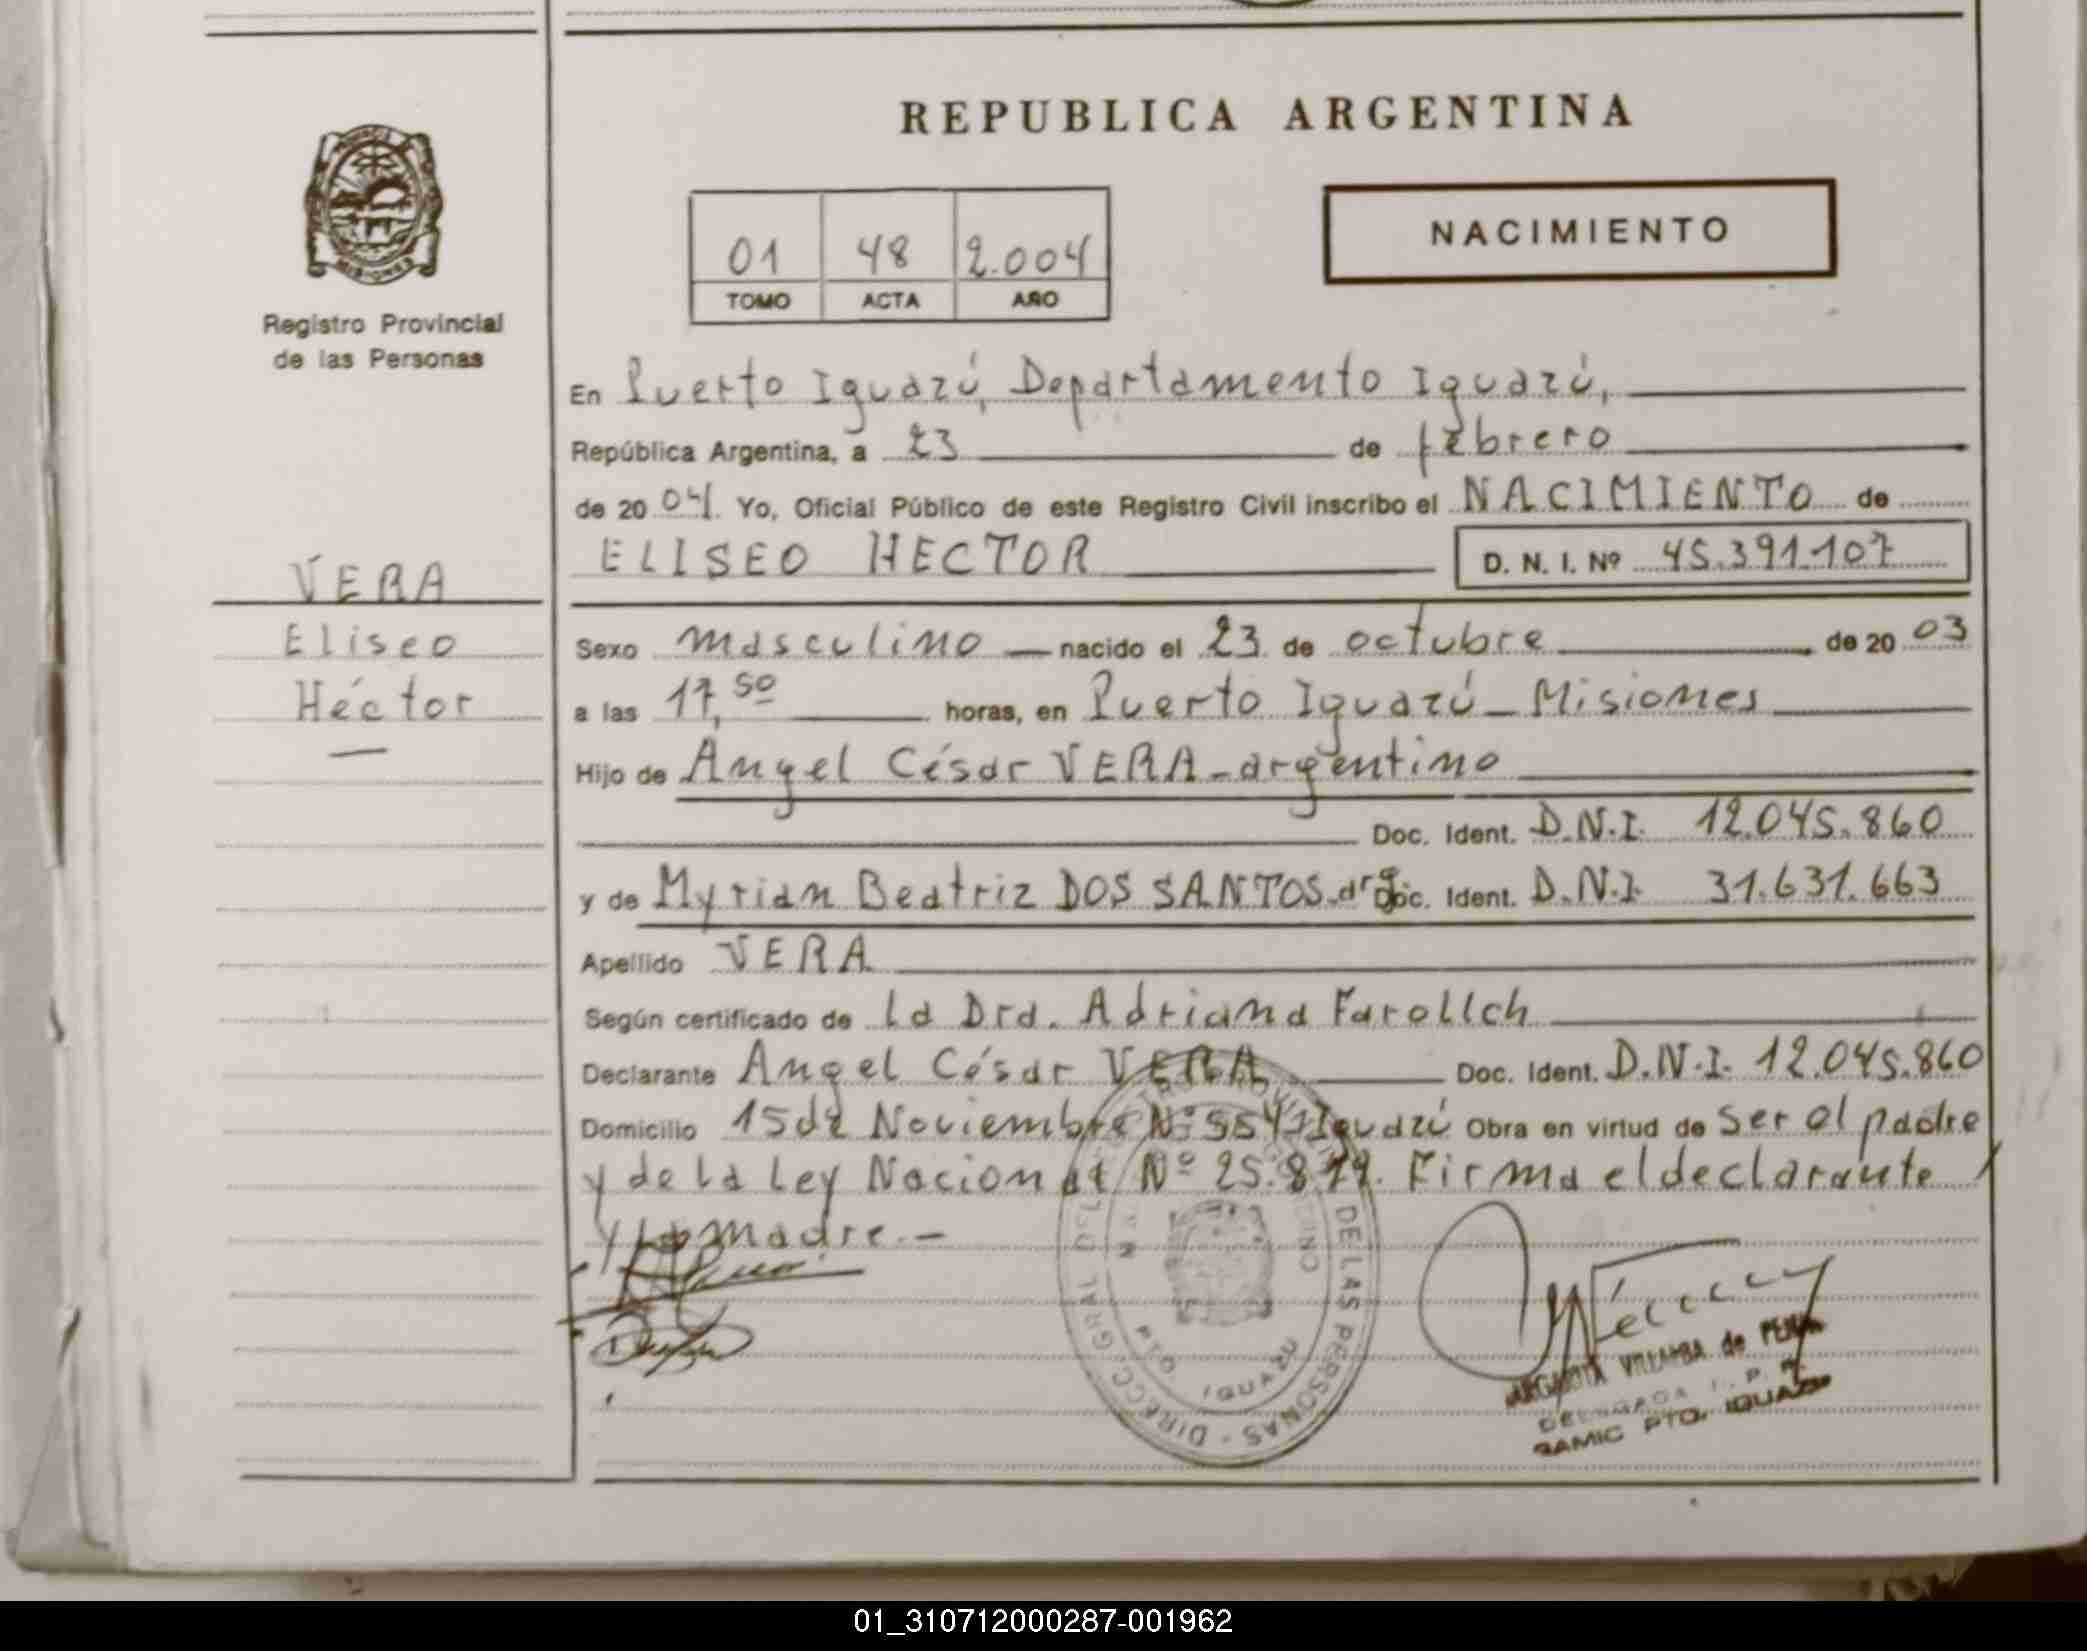 REPUBLICA ARGENTINA
MISIONES
Registro Provincial
de las Personas
01 48 2.004
TOMO ACTA AÑO
NACIMIENTO
En Puerto Iguazú, Departamento Iguazú,
República Argentina, a 23 de febrero
de 20 04 Yo, Oficial Público de este Registro Civil inscribo el NACIMIENTO de
ELISEO HECTOR D. N. I. Nº 45.391.107
VERA
Eliseo
Héctor
Sexo masculino nacido el 23 de octubre de 20 03
a las 17,50 horas, en Puerto Iguazú - Misiones
Hijo de Ángel César VERA - argentino
Doc. Ident. D.N.I. 12.045.860
y de Myrian Beatriz DOS SANTOS - arg Doc. Ident. D.N.I. 31.631.663
Apellido VERA
Según certificado de la Dra. Adriana Farollch
Declarante Angel César VERA Doc. Ident. D.N.I. 12.045.860
Domicilio 15 de Noviembre Nº 554 - Iguazú Obra en virtud de ser el padre
y de la Ley Nacional Nº 25.819. Firma el declarante
y la madre.-
DIRECC. GRAL DEL REGISTRO PROVINCIAL DE LAS PERSONAS
PTO. IGUAZU
MARGARITA VILLALBA de
DELEGADA R. P. P.
SAMIC PTO. IGUAZU
01_310712000287-001962